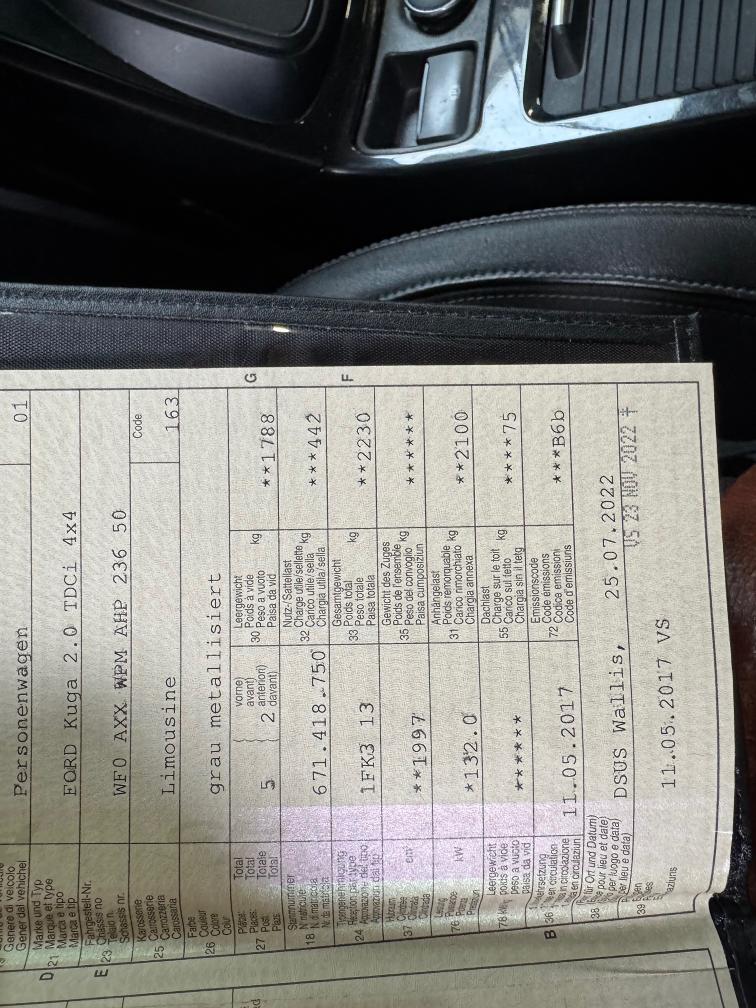 Personenwagen
01
Genere di veicolo
Gener dal vehichel
D
21
Marke und Typ
Marque et type
Marca e tipo
Marca e tip
FORD Kuga 2.0 TDCi 4x4
E
23
Fahrgestell-Nr.
Châssis no
Telaio n.
Schassis nr.
WF0 AXX WPM AHP 236 50
25
Karosserie
Carosserie
Carrozzeria
Carossaria
Limousine
Code
163
26
Farbe
Couleur
Colore
Colur
grau metallisiert
27
Plätze
Places
Posti
Plazs
Total
Total
Totale
Total
5
2
vorne)
avant)
anteriori)
davant)
30
Leergewicht
Poids à vide
Peso a vuoto
Paisa da vid
kg
**1788
G
18
Stammnummer
N° matricule
N. di matricola
Nr. da matricla
671.418.750
32
Nutz-/Sattellast
Charge utile/sellette
Carico utile/sella
Chargia utila/sella
kg
***442
24
Typengenehmigung
Réception par type
Approvazione del tipo
Approvaziun dal tip
1FK3 13
33
Gesamtgewicht
Poids total
Peso totale
Paisa totala
kg
**2230
F
37
Hubraum
Cylindrée
Cilindrata
cm³
**1997
35
Gewicht des Zuges
Poids de l'ensemble
Peso del convoglio
Paisa cumposiziun
kg
******
76
Leistung
kW
*132.0
31
Anhängelast
Poids remorquable
Carico rimorchiato
Chargia annexa
kg
**2100
78
Leergewicht
poids à vide
peso a vuoto
paisa da vid
******
55
Dachlast
Charge sur le toit
Carico sul tetto
Chargia sin il tetg
kg
****75
B
36
en circulation
in circolazione
en circulaziun
11.05.2017
72
Emissionscode
Code émissions
Codice emissioni
Code d'emissiuns
***B6b
38
für Ort und Datum)
pour lieu et date)
per luogo e data)
per lieu e data)
DSUS Wallis, 25.07.2022
39
11.05.2017 VS
VS 23 NOV 2022